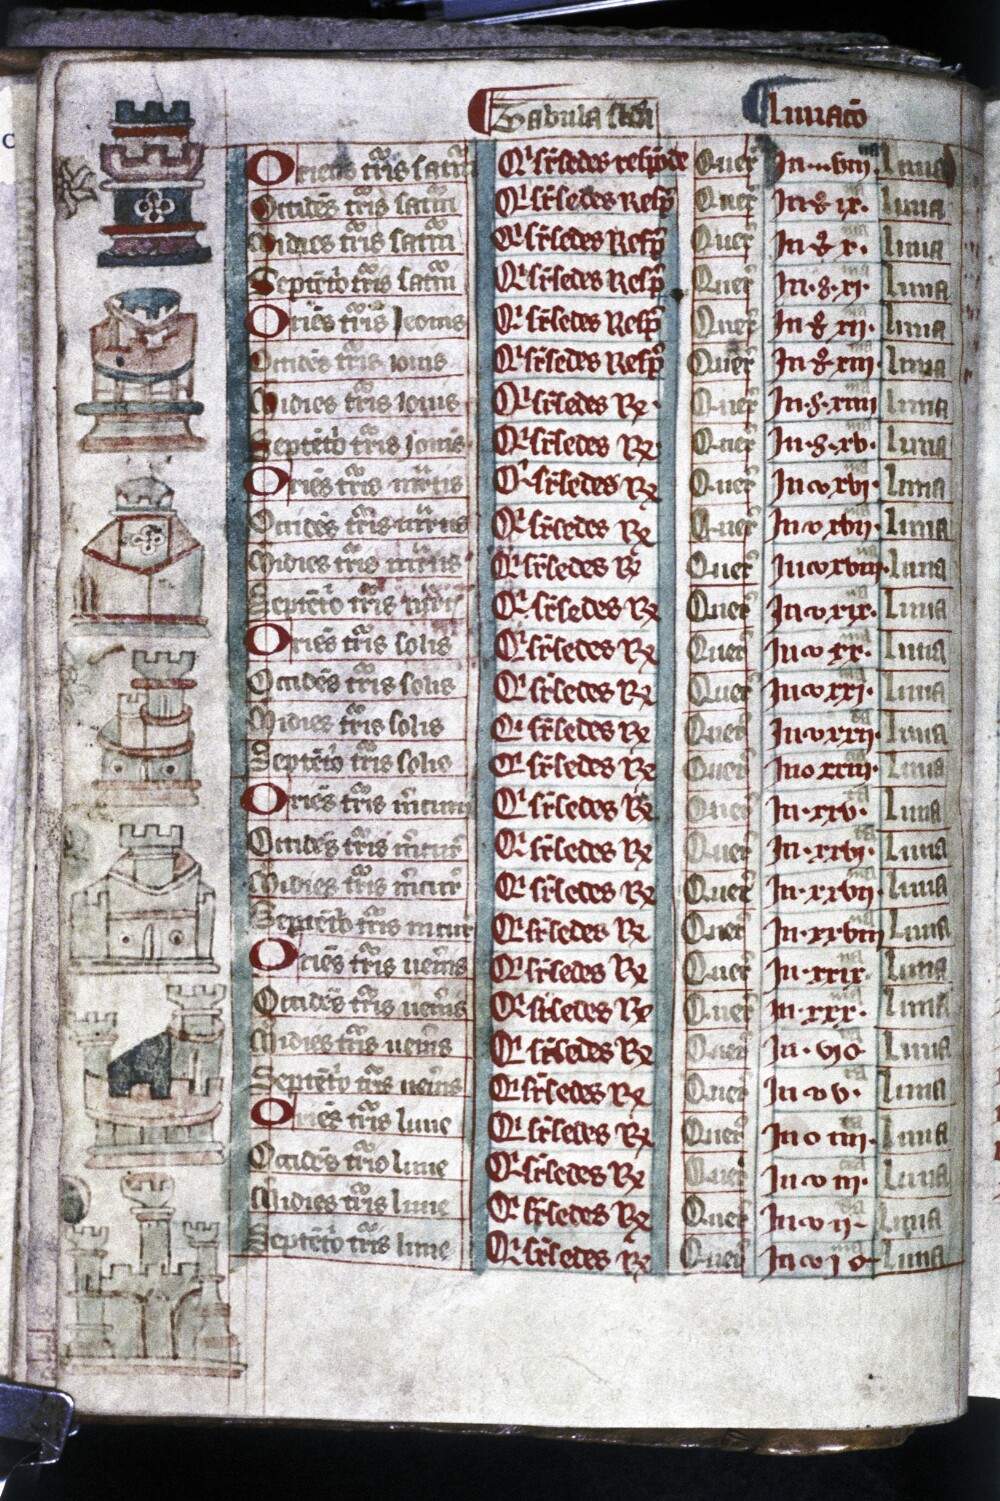 Tabula Lunacō
Oriens t̄ris saturñ Q' sr̄ sedes respōde Quer̄ In viii Luna
Occidēs t̄ris saturñ Q' sr̄ sedes Resp̄ Quer̄ In · ix · Luna
Midies t̄ris saturñ Q' sr̄ sedes Resp̄ Quer̄ In · x · Luna
Septētō t̄ris saturñ Q' sr̄ sedes Resp̄ Quer̄ In · xi · Luna
Oriēs t̄ris Iouis Q' sr̄ sedes Resp̄ Quer̄ In · xii · Luna
Occidēs t̄ris iouis Q' sr̄ sedes Resp̄ Quer̄ In · xiii Luna
Midies t̄ris Iouis Q' sr̄ sedes ℞ · Quer̄ In · xiiii Luna
Septētō t̄ris Iouis Q' sr̄ sedes ℞ Quer̄ In · xv · Luna
Oriēs t̄ris m̄rtis Q' sr̄ sedes ℞ Quer̄ In xvi · Luna
Occidēs t̄ris m̄rtis Q' sr̄ sedes ℞ Quer̄ In xvii · Luna
Midies t̄ris m̄rtis Q' sr̄ sedes ℞ Quer̄ In xviii · Luna
Septētō t̄ris m̄rtis Q' sr̄ sedes ℞ Quer̄ In xix · Luna
Oriēs t̄ris solis Q' sr̄ sedes ℞ Quer̄ In xx · Luna
Occidēs t̄ris solis Q' sr̄ sedes ℞ Quer̄ In xxi · Luna
Midies t̄ris solis Q' sr̄ sedes ℞ Quer̄ In xxii · Luna
Septētō t̄ris solis Q' sr̄ sedes ℞ Quer̄ In xxiii · Luna
Oriēs t̄ris m̄curii Q' sr̄ sedes ℞ Quer̄ In · xxv · Luna
Occidēs t̄ris m̄cur̄ Q' sr̄ sedes ℞ Quer̄ In · xxvi · Luna
Midies t̄ris m̄cur̄ Q' sr̄ sedes ℞ Quer̄ In · xxvii Luna
Septētō t̄ris m̄cur̄ Q' sr̄ sedes ℞ Quer̄ In · xxviii Luna
Oriēs t̄ris uen̄is Q' sr̄ sedes ℞ Quer̄ In · xxix · Luna
Occidēs t̄ris uen̄is Q' sr̄ sedes ℞ Quer̄ In · xxx · Luna
Midies t̄ris uen̄is Q' sr̄ sedes ℞ Quer̄ In · vi Luna
Septētō t̄ris uen̄is Q' sr̄ sedes ℞ Quer̄ In v · Luna
Oriēs t̄ris lune Q' sr̄ sedes ℞ Quer̄ In iiii · Luna
Occidēs t̄ris lune Q' sr̄ sedes ℞ Quer̄ In iii · Luna
Midies t̄ris lune Q' sr̄ sedes ℞ Quer̄ In ii · Luna
Septētō t̄ris lune Q' sr̄ sedes ℞ Quer̄ In i Luna